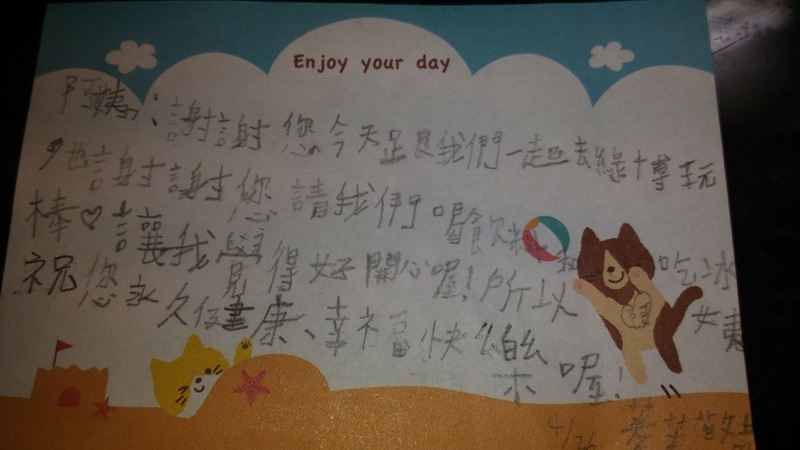 Enjoy your day
阿姨：謝謝您今天跟我們一起去綠博玩
也謝謝您請我們喝飲料和吃冰
棒♡讓我覺得好開心喔！所以姨
祝您永久健康、幸福快樂喔！
4/26 敬上